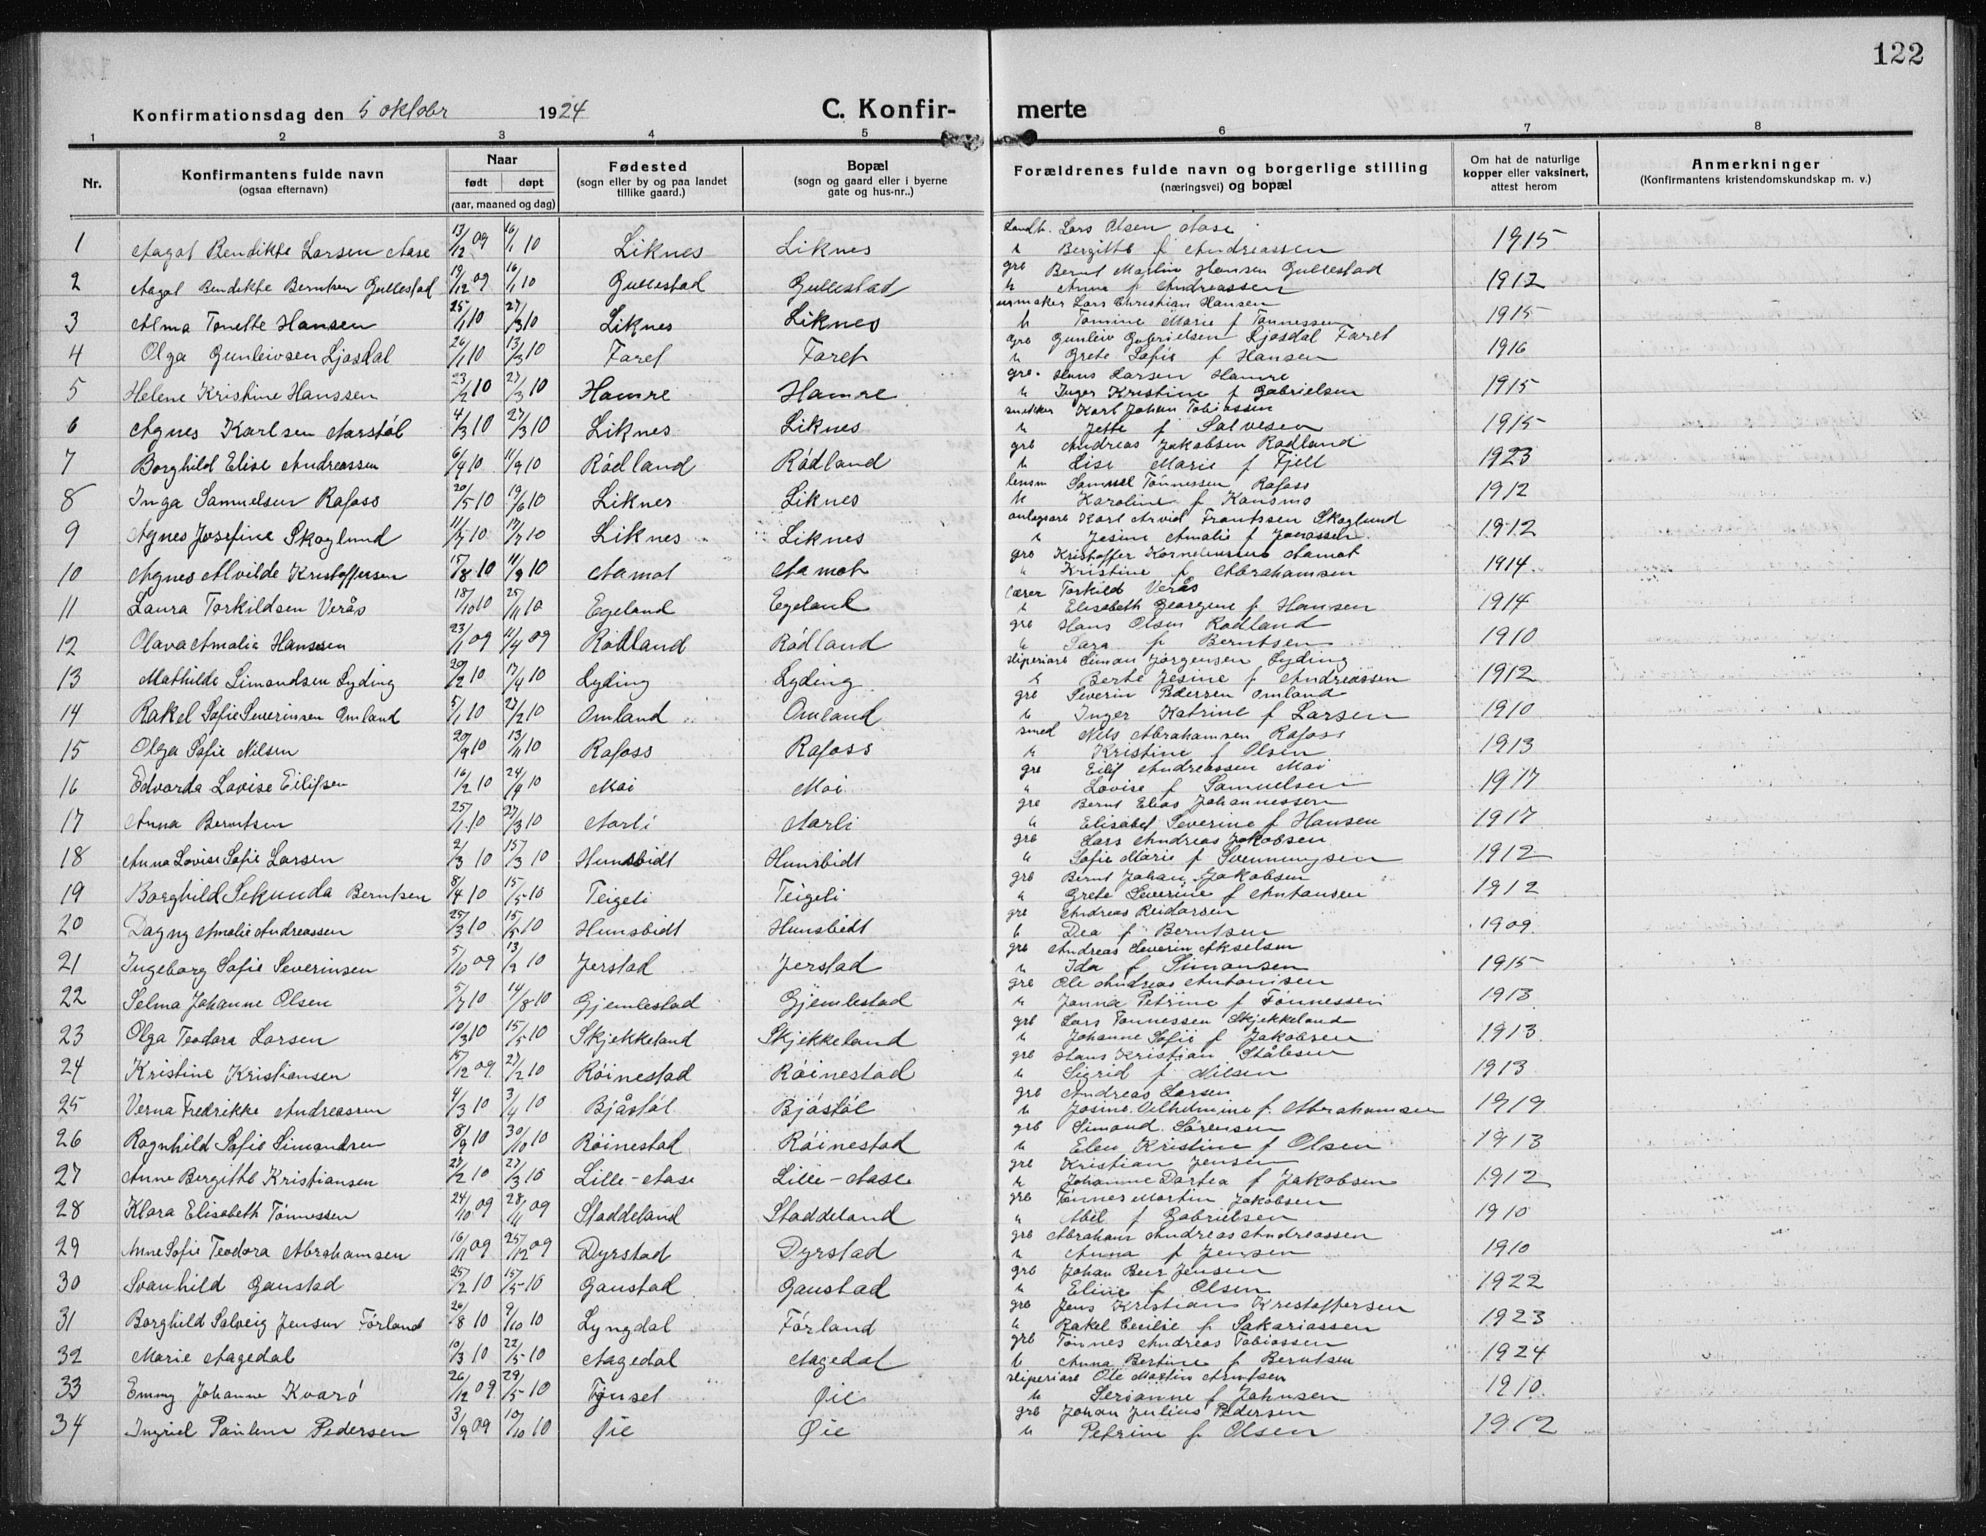 122
Konfirmationsdag den 5 oktobr 1924 C. Konfir- merte
1 2 3 4 5 6 7 8
Nr. Konfirmantens fulde navn (ogsaa efternavn) Naar født døpt (aar, maaned og dag) Fødested (sogn eller by og paa landet tillike gaard.) Bopæl (sogn og gaard eller i byerne gate og hus-nr..) Forældrenes fulde navn og borgerlige stilling (næringsvei) og bopæl Om hat de naturlige kopper eller vaksinert, attest herom Anmerkninger (Konfirmantens kristendomskundskap m. v.)
1 Aagot Bendikte Larsen Aase 13/12 09 16/1 10 Liknes Liknes Lars Olsen Aase
Bergitte f Andreassen 1915
2 Aagot Bendikte Berntsen Gullestad 19/12 09 16/1 10 Gullestad Gullestad grb Bernt Martin Hansen Gullestad
h Anna f Andreassen 1912
3 Alma Tonette Hansen 25/1 10 27/3 10 Liknes Liknes urmaker Lars Christian Hansen
h Tomine Marie f Tønnessen 1915
4 Olga Gunleivsen Ljosdal 26/1 10 13/3 10 Faret Faret grb Gunleiv Gabrielsen Ljosdal Faret
h Grete Sofie f Hansen 1916
5 Helene Kristine Hanssen 23/2 10 27/3 10 Hamre Hamre grb. Hans Larsen Hamre
h Inger Kristine f Gabrielsen 1915
6 Agnes Karlsen Aarstöl 4/3 10 27/3 10 Liknes Liknes snekker Karl Johan Tobiassen
h Jette f Salvesen 1915
7 Borghild Elise Andreassen 6/4 10 11/9 10 Rödland Rödland grb Andreas Jakobsen Rødland
h Lise Marie f Fjell 1923
8 Inga Samuelsen Rafoss 20/5 10 19/6 10 Liknes Liknes lensm Samuel Tønnessen Rafoss
h Karoline f Kansmo 1912
9 Agnes Josefine Skoglund 11/5 10 17/7 10 Liknes Liknes Karl Arvid Frantssen Skoglund
h Jesine Amalie f Jonassen 1912
10 Agnes Alvilde Kristoffersen 15/8 10 11/9 10 Aamot Aamot grb Kristoffer Korneliussen Aamot
h Kristine f Abrahamsen 1914
11 Laura Torkildsen Verås 18/10 10 25/11 10 Egeland Egeland lærer Torkild Verås
h Elisabeth Georgine f Hansen 1914
12 Olava Amalia Hanssen 23/1 09 11/4 09 Rödland Rödland grb Hans Olsen Rødland
h Sara f Berntsen 1910
13 Mathilde Simondsen Lyding 20/2 10 17/4 10 Lyding Lyding sliperiarb Simon Jørgensen Lyding
h Berte Jesine f Andreassen 1912
14 Rakel Sofie Severinsen Omland 5/1 10 27/2 10 Omland Omland grb Severin Pedersen Omland
h Inger Katrine f Larsen 1910
15 Olga Sofie Nilsen 20/9 10 13/11 10 Rafoss Rafoss smed Nils Abrahamsen Rafoss
h Kristine f Olsen 1913
16 Edvarda Lovise Eilifsen 16/2 10 24/9 10 Moi Moi grb Eilif Andreassen Moi
h Lovise f Samuelsen 1917
17 Anna Berntsen 25/1 10 27/3 10 Aarli Aarli grb Bernt Elias Johannessen
h Elisabet Severine f Hansen 1917
18 Anna Lovise Sofie Larsen 2/3 10 15/3 10 Hunsbidt Hunsbidt grb Lars Andreas Jakobsen
h Sofie Marie f Svenningsen 1912
19 Borghild Sekunda Berntsen 8/4 10 15/5 10 Teigeli Teigeli grb Bernt Johan Jakobsen
h Grete Severine f Antonsen 1912
20 Dagny Amalie Andreassen 25/3 10 15/5 10 Hunsbidt Hunsbidt grb Andreas Reidarsen
h Dea f Berntsen 1909
21 Ingeborg Sofie Severinsen 5/10 09 13/2 10 Jerstad Jerstad grb Andreas Severin Akselsen
h Ida f Simonsen 1915
22 Selma Johanne Olsen 5/7 10 14/8 10 Gjemlestad Gjemlestad grb Ole Andreas Antonisen
h Janna Petrine f Tønnessen 1913
23 Olga Teodora Larsen 10/3 10 15/5 10 Skjekkeland Skjekkeland grb Lars Tønnessen Skjekkeland
h Johanne Sofie f Jakobsen 1913
24 Kristine Kristiansen 15/12 09 27/2 10 Röinestad Röinestad grb Hans Kristian Stålesen
h Sigrid f Nilsen 1913
25 Verna Fredrikke Andreassen 4/3 10 3/4 10 Bjåstöl Bjåstöl grb Andreas Larsen
h Josine Vilhelmine f. Abrahamsen 1919
26 Ragnhild Sofie Simondsen 8/9 10 30/10 10 Röinestad Röinestad grb Simond Sørensen
h Elen Kristine f Olsen 1913
27 Anne Bergitte Kristiansen 27/2 10 27/3 10 Lille-Aase Lille-Aase grb Kristian Jensen
h Johanne Dortea f Jakobsen 1912
28 Klara Elisabeth Tönnessen 24/10 09 28/11 09 Staddeland Staddeland grb Tønnes Martin Jakobsen
h Abel f Gabrielsen 1910
29 Anne Sofie Teodora Abrahamsen 16/11 09 25/12 09 Dyrstad Dyrstad grb Abraham Andreas Andreassen
h Anna f Jensen 1910
30 Svanhild Ganstad 25/2 10 15/5 10 Ganstad Ganstad grb Johan Beer Jensen
h Eline f Olsen 1922
31 Borghild Solveig Jensen Förland 26/8 10 9/10 10 Lyngdal Förland grb Jens Kristian Kristoffersen
h Rakel Cecilie f Sakariassen 1923
32 Marie Aagedal 10/3 10 22/5 10 Aagedal Aagedal grb Tönnes Andreas Tobiassen
h Anna Bertine f Berntsen 1924
33 Emmy Johanne Kvarö 26/12 09 29/5 10 Tynset Øie sliperiarb Ole Martin Arntsen
h Serianne f Johnsen 1910
34 Ingriel Pedersen 3/9 09 10/10 10 Øie Øie grb Johan Julius Pedersen
h Petrine f Olsen 1912